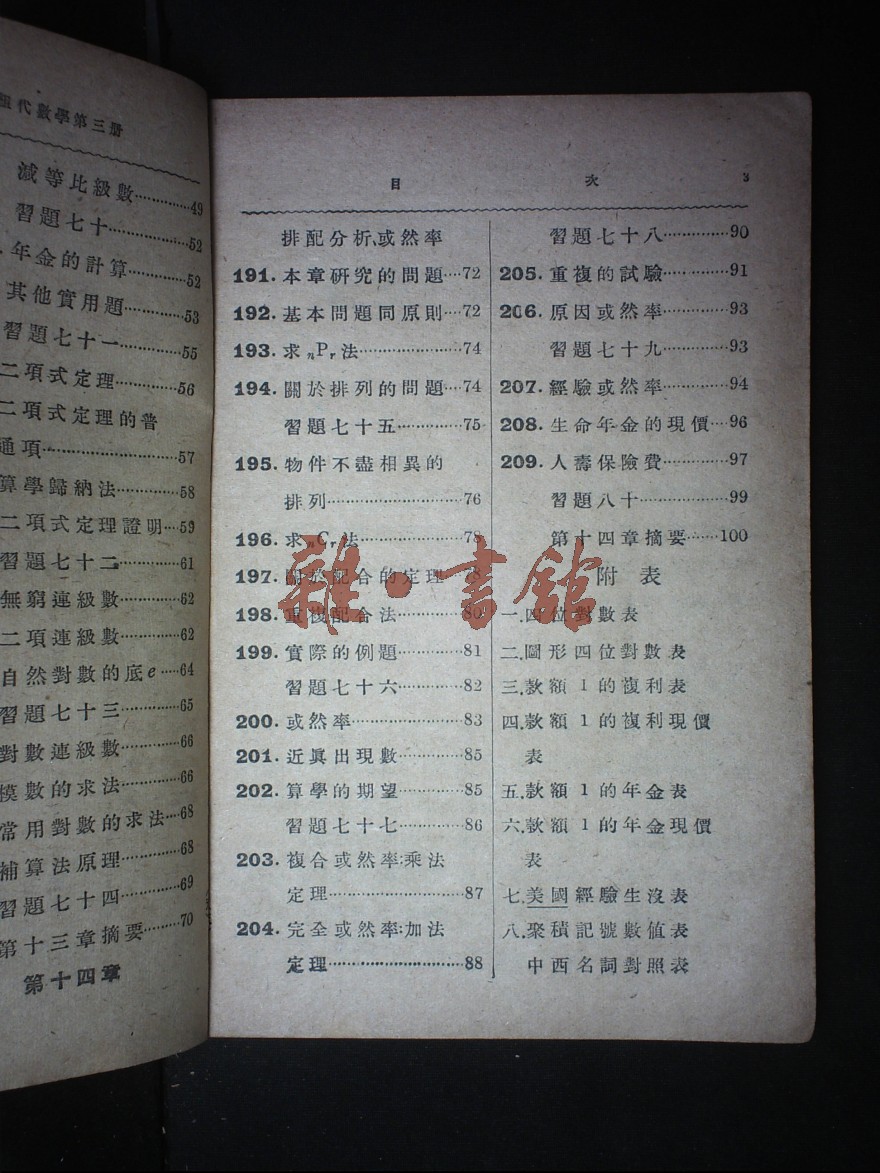 代數學第三册
減等比級數……………49
習題七十………………52
年金的計算……………52
其他實用題……………53
習題七十一……………55
二項式定理……………56
二項式定理的普
通項……………………57
算學歸納法……………58
二項式定理證明…59
習題七十二……………61
無窮連級數……………62
二項連級數……………62
自然對數的底e……64
習題七十三……………65
對數連級數……………66
模數的求法……………66
常用對數的求法…68
補算法原理……………68
習題七十四……………69
第十三章摘要…………70
第十四章
目 次 3
排配分析,或然率
191. 本章研究的問題…72
192. 基本問題同原則…72
193. 求nPr法………………74
194. 關於排列的問題…74
習題七十五……………75
195. 物件不盡相異的
排列……………………76
196. 求nCr法………………78
197. 關於配合的定理…78
198. 重複配合法……………80
199. 實際的例題……………81
習題七十六……………82
200. 或然率…………………83
201. 近眞出現數……………85
202. 算學的期望……………85
習題七十七……………86
203. 複合或然率:乘法
定理……………………87
204. 完全或然率:加法
定理……………………88
習題七十八……………90
205. 重複的試驗……………91
206. 原因或然率……………93
習題七十九……………93
207. 經驗或然率……………94
208. 生命年金的現價…96
209. 人壽保險費……………97
習題八十………………99
第十四章摘要……100
附表
一.四位對數表
二.圖形四位對數表
三.款額 1 的複利表
四.款額 1 的複利現價
表
五.款額 1 的年金表
六.款額 1 的年金現價
表
七.美國經驗生沒表
八.聚積記號數值表
中西名詞對照表
雜·書館